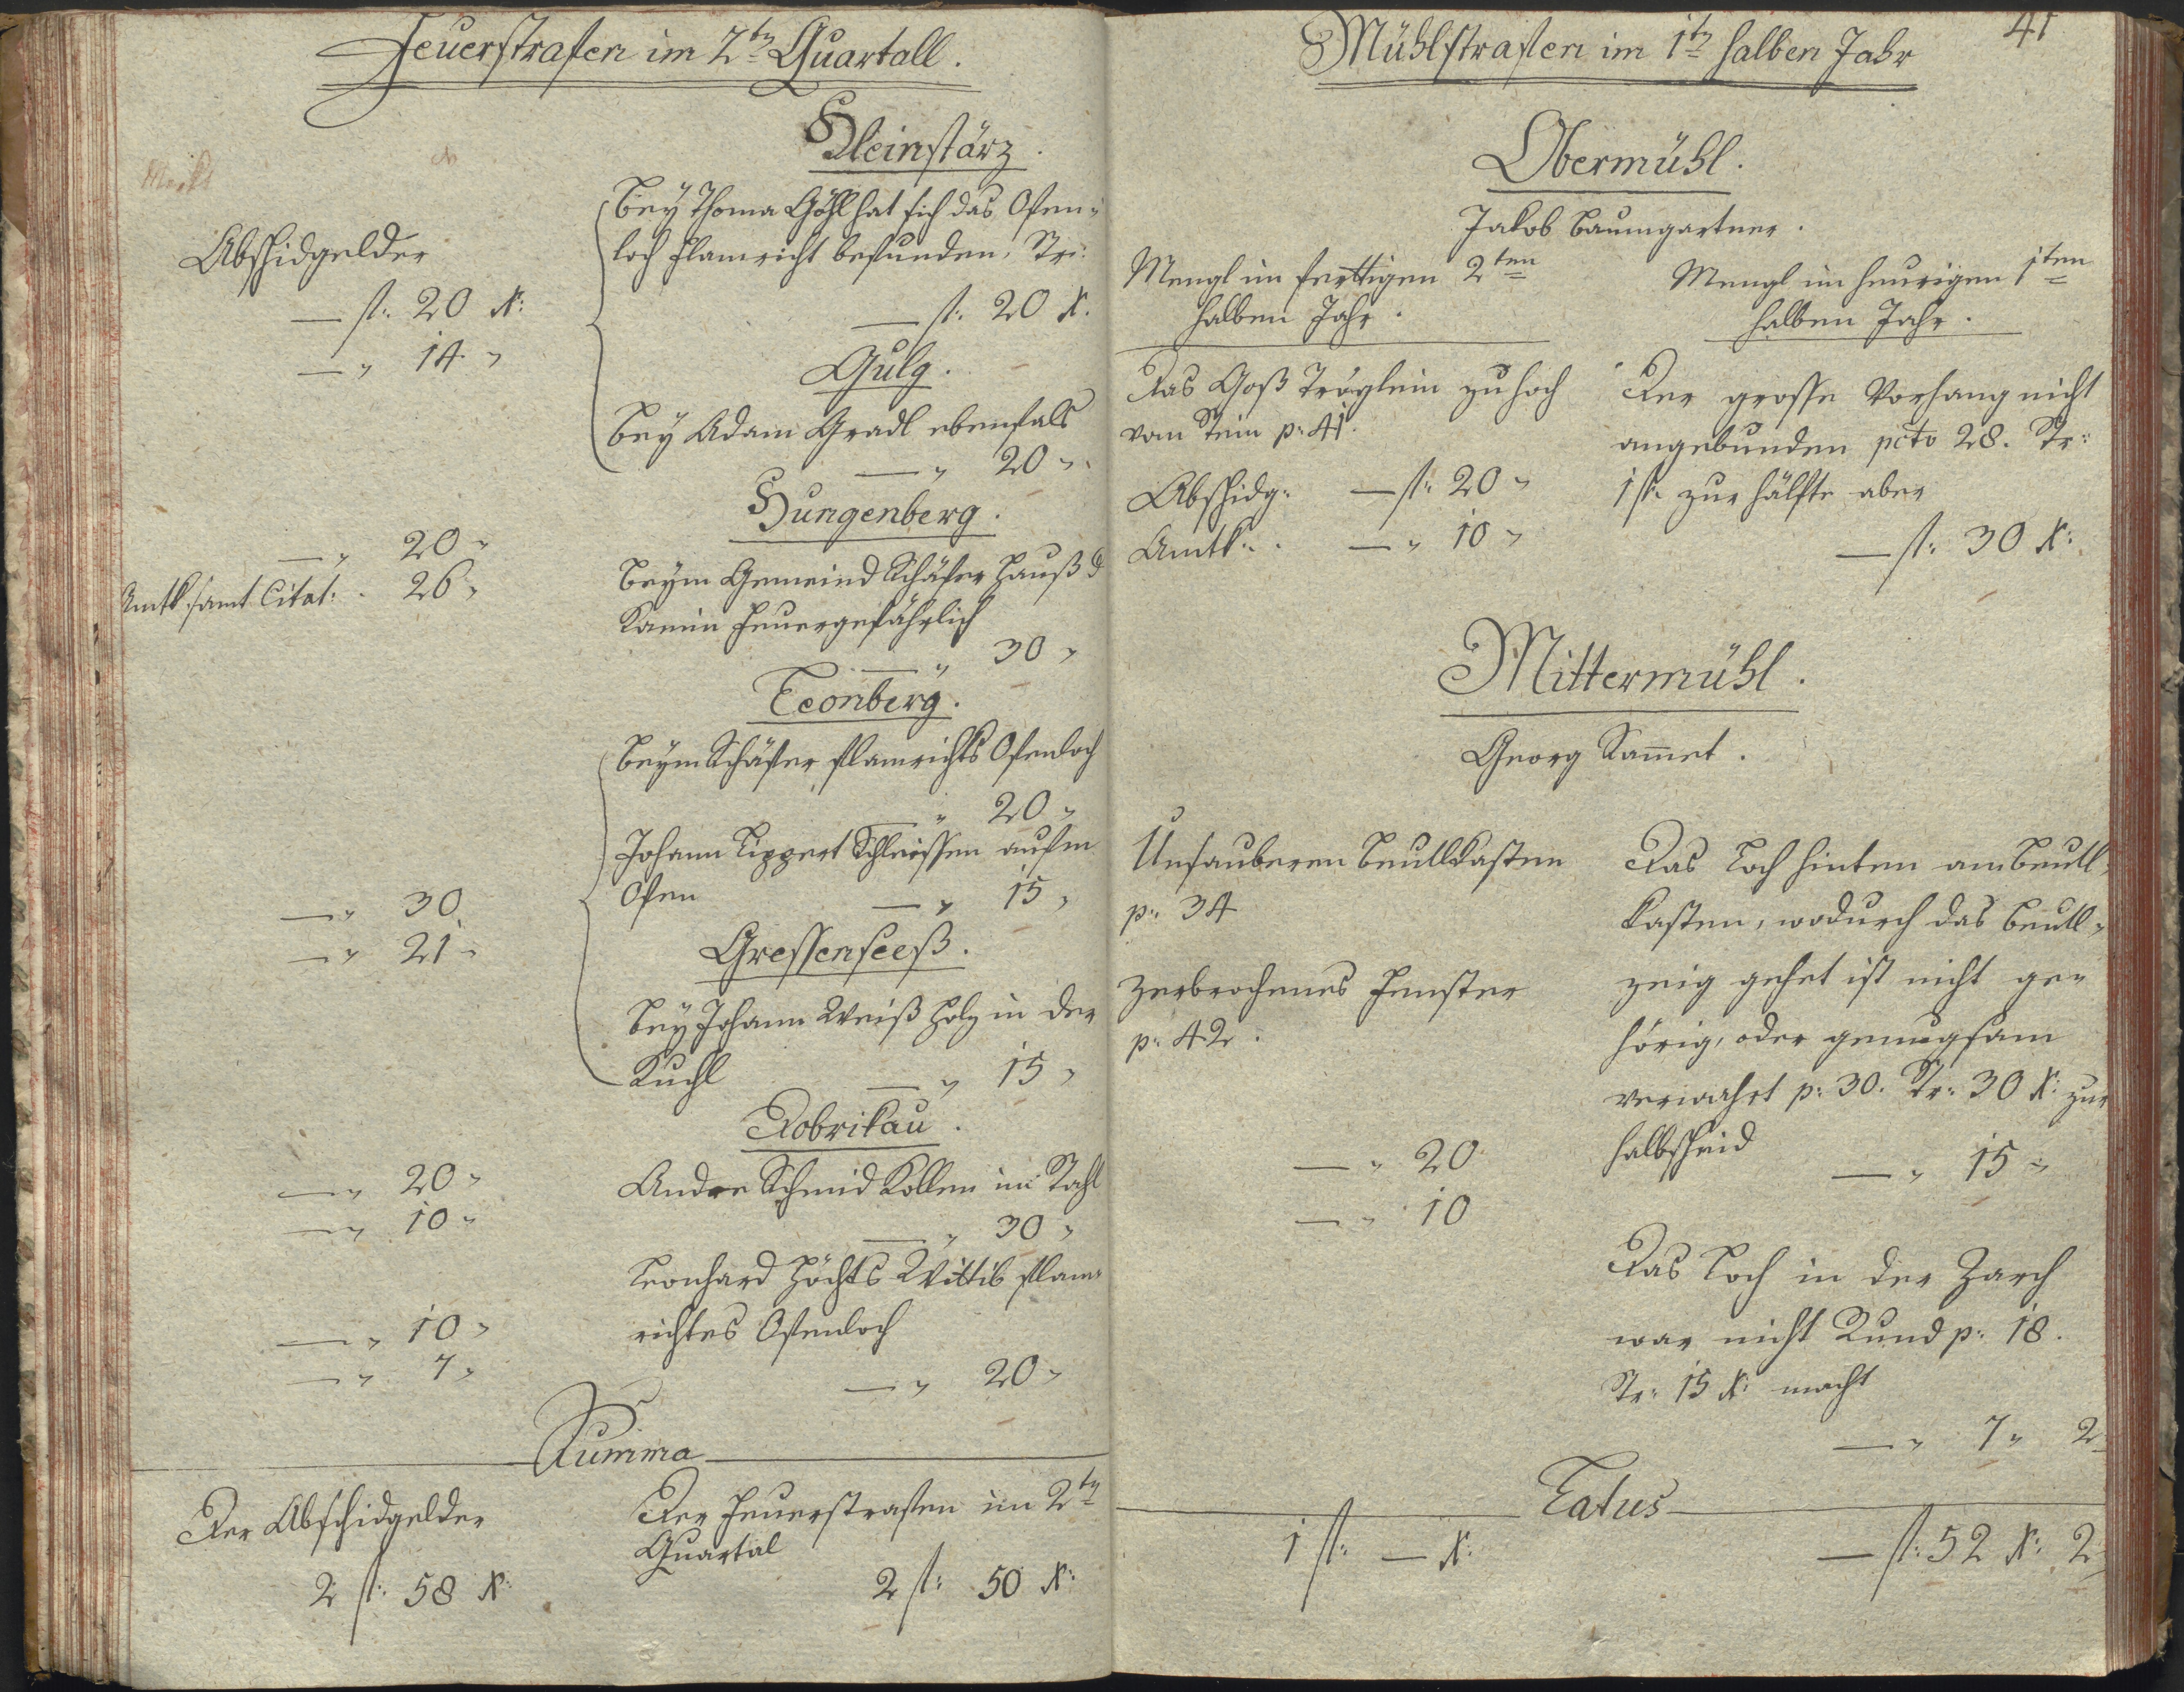 Feuerstrafen im 2ten Quartall.
Kleinstärz.
Abschidgelder
Bey Thoma Göhl hat sich das Ofen-
loch flamricht befunden, Str:
— fl: 20 x:
— fl: 20 x.
— " 14 "
Gulg.
Bey Adam Gradl ebenfals
— " 20 "
Hungenberg.
— " 20 "
Amtk. samt Citat: . 26 "
Beym Gemeind Schäfer Hauß d
Kamin feuergefährlich
— " 30 "
Leonberg.
Beym Schäfer flamrichts Ofenloch
— " 20 "
Johann Lippert Schleissen aufm
Ofen — " 15 "
— " 30
— " 21 "
Gressenseeß.
Bey Johann Weiß Holz in der
Kuchl — " 15 "
Dobrikau.
— " 20 "
Andre Schmid Kollen im Stahl
— " 10 "
— " 30 "
Leonhard Höchts Wittib flam-
richtes Ofenloch
— " 10 "
— " 7 "
— " 20 "
Summa
Der Abschidgelder
2 fl: 58 x:
Der Feuerstrafen im 2ten
Quartal
2 fl: 50 x:
41
Mühlstrafen im 1ten halben Jahr
Obermühl.
Jakob Baumgartner.
Mengl im ferttigen 2ten
halben Jahr.
Mengl im heurigen 1ten
halben Jahr.
Das Goß Tröglein zu hoch
vom Stein p: 41.
Abschidg: — fl: 20 "
Amtk: . — " 10 "
Der grosse Vorhang nicht
angebunden pcto 28. Str:
1 fl: zur Hälfte aber
— fl: 30 x:
Mittermühl.
Georg Sam̄et.
Unsauberen Beutlkasten
p: 34
Zerbrochenes Fenster
p: 42.
— " 20
— " 10
Das Loch hinten am Beutl-
kasten, wodurch das Beutl-
zeig gehet ist nicht ge-
hörig, oder genugsam
verwahrt p: 30. Str: 30 x: zur
halbscheid — " 15 "
Das Loch in der Zarch
war nicht Rund p: 18.
Str: 15 x: macht
— " 7 " 2
Latus
1 fl: — x:
— fl: 52 x: 2